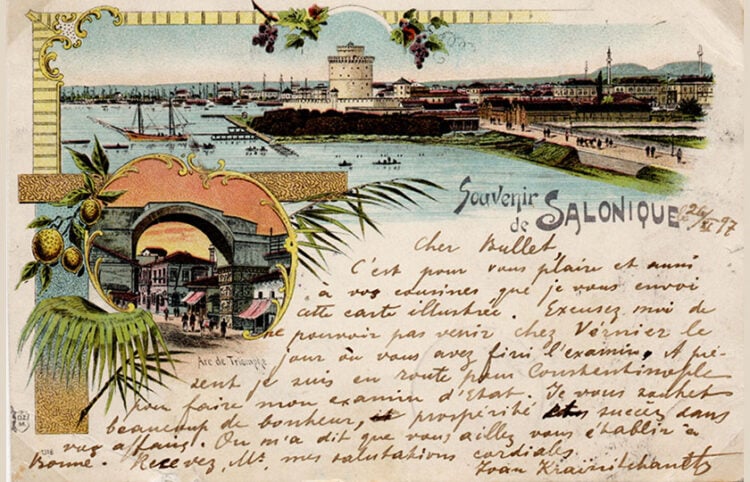 Souvenir
de SALONIQUE
le 26/XI 97
Cher Bullet
C'est pour vous plaire et aussi
à vos cousines que je vous envoi
cette carte illustrée. Excusez moi de
ne pouvoir pas venir chez Vernier le
jour où vous avez fini l'examin. A pré-
Arc de Triomphe
sent je suis en route pour Constantinople
pour faire mon examin d'Etat. Je vous
beaucoup de bonheur, prospérité succez dans
vos affairs. On m'a dit que vous aillez vous établir à
Recevez, Mr. mes salutations cordiales.
Ivan